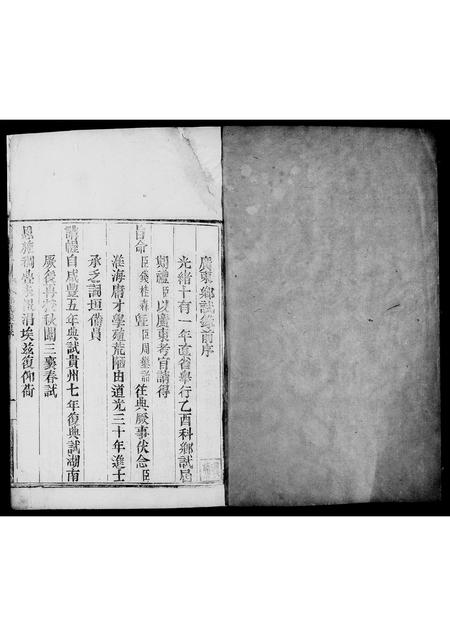 廣東鄉試錄前序
光緒十有一年直省舉行乙酉科鄉試屆
期禮臣以廣東考官請得
旨命臣錢桂森暨臣周 往典厥事伏念臣
淮海庸才學殖荒陋由道光三十年進士
承乏詞垣備員
講幄自咸豐五年典試貴州七年復典試湖南
厥後 秋闈三襄春試
恩施稠疊 涓埃茲復仰銜